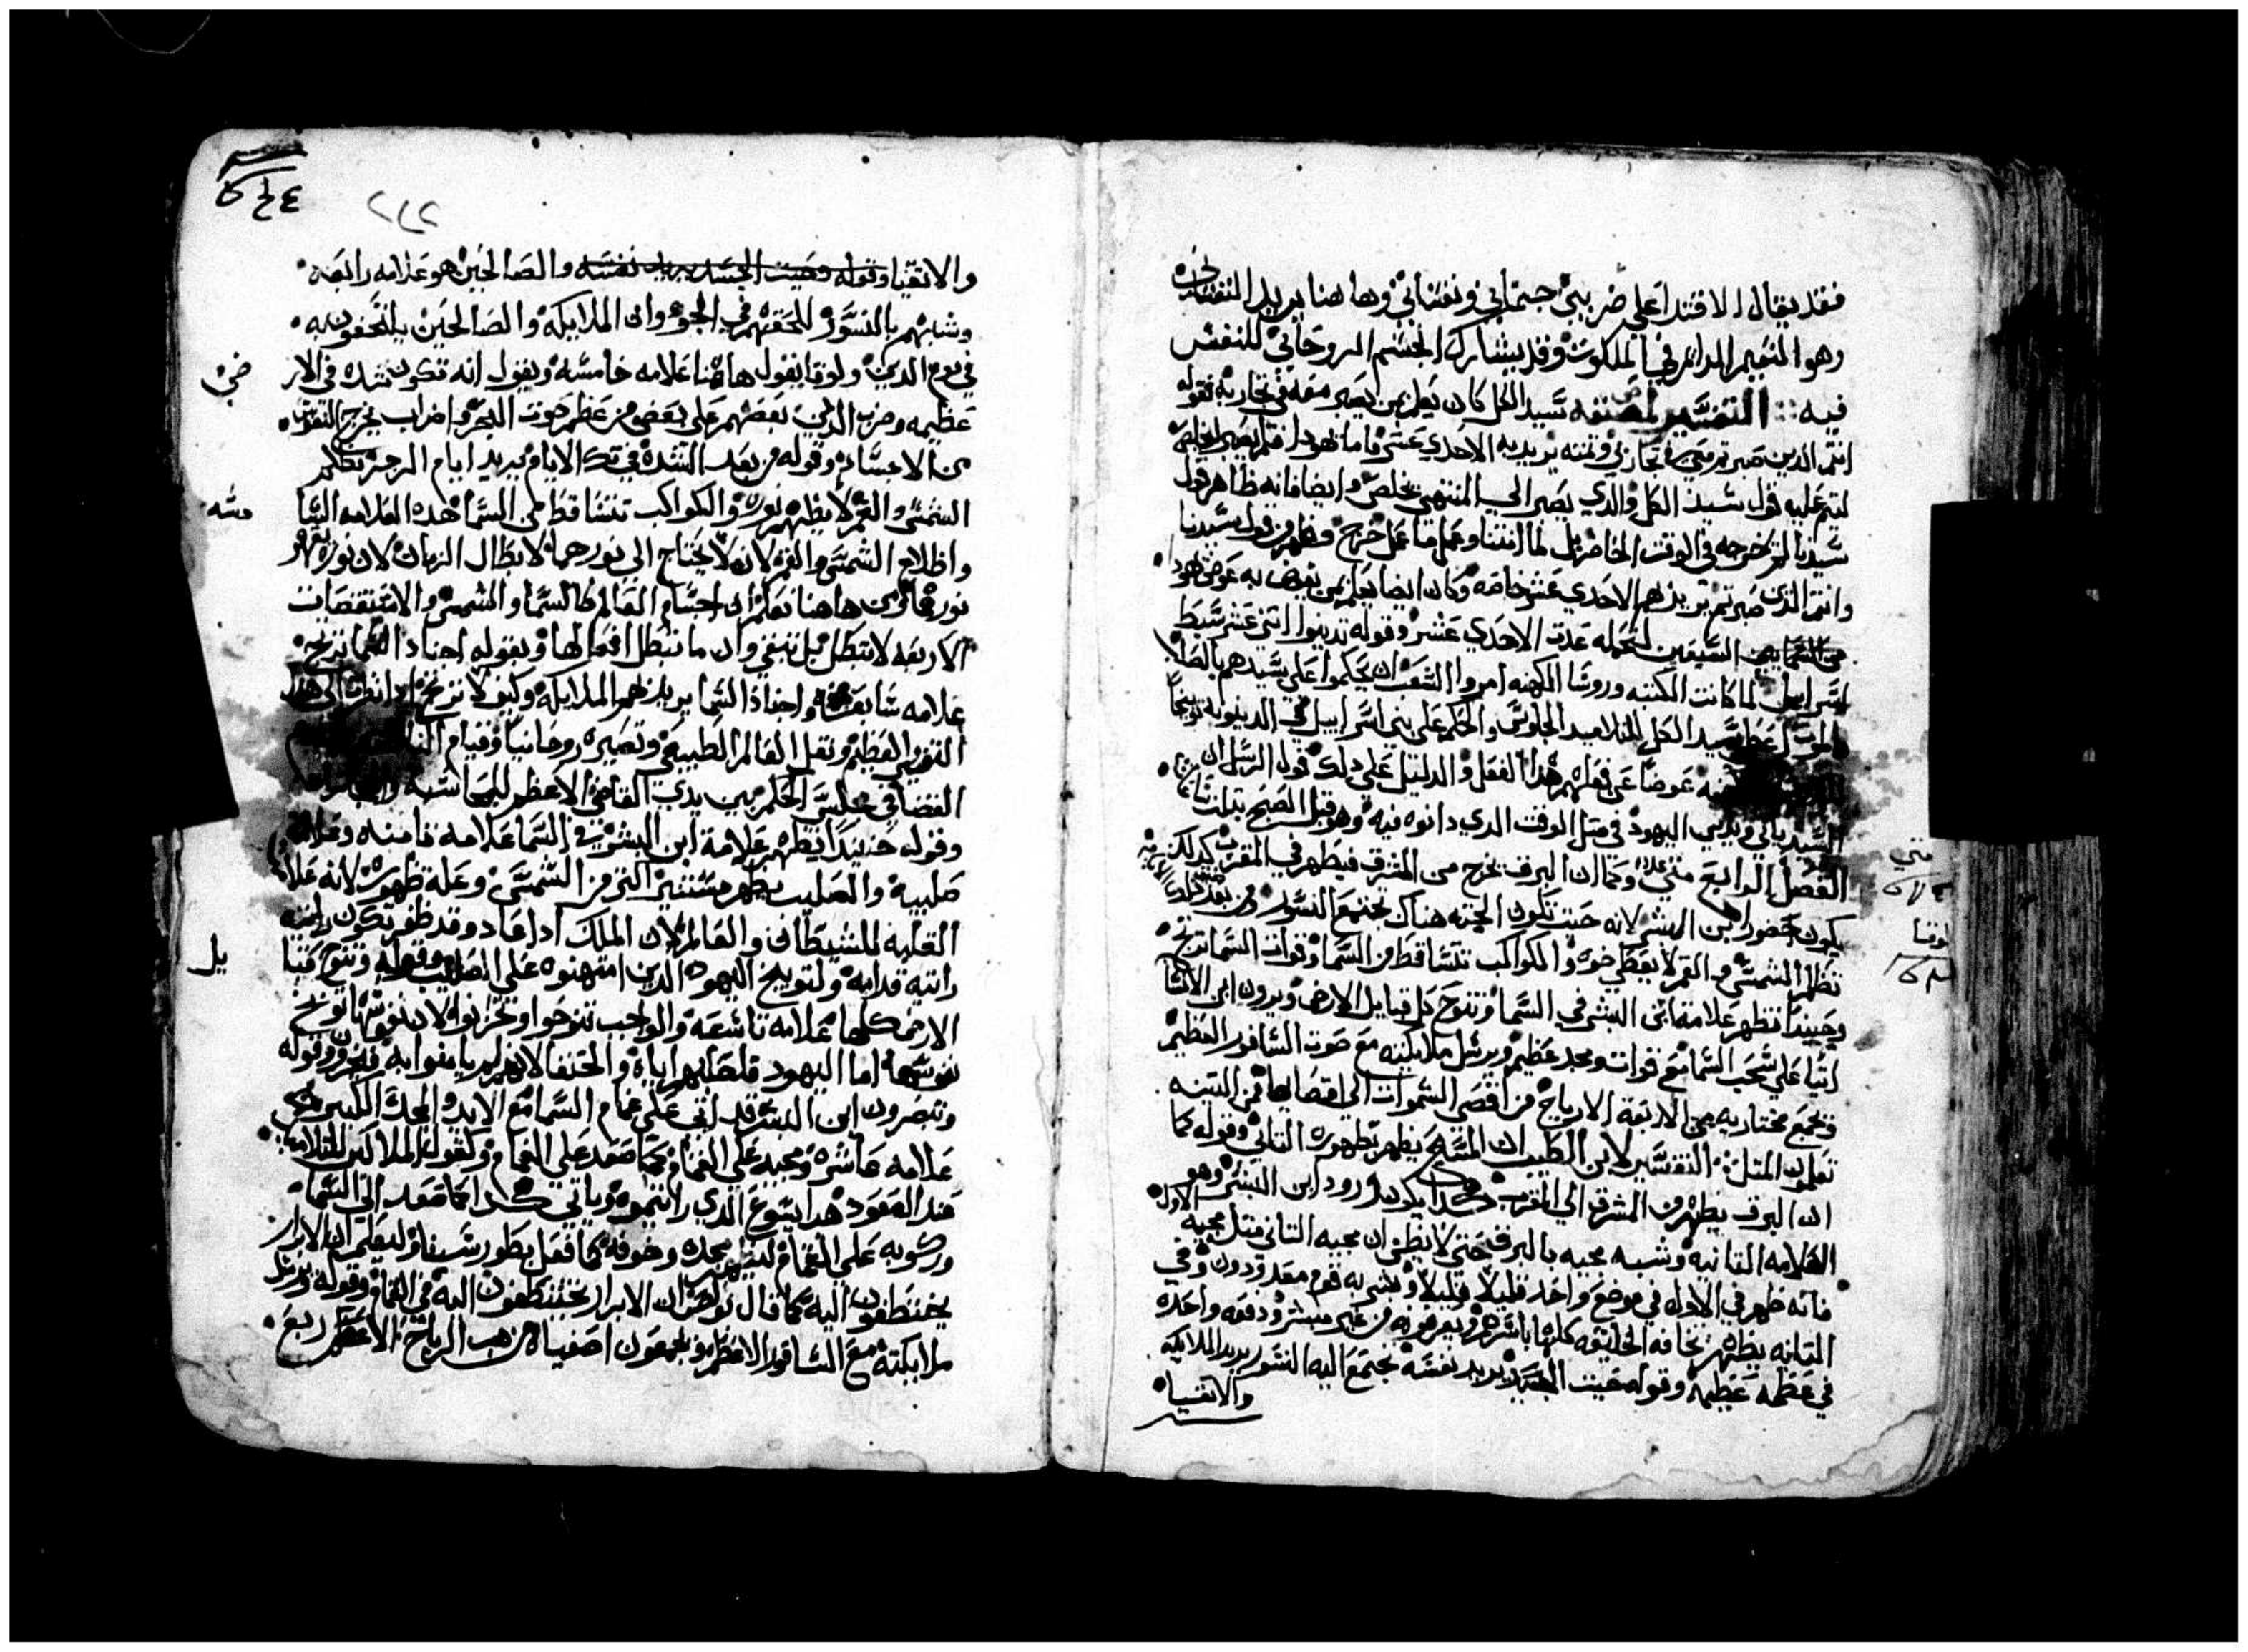 فقد يقال الاقتدا علي ضربين جسماني ونفساني وهاهنا يريد النفساني
وهو النعيم الدايم في الملكوت وقد يشارك الجسم الروحاني للنفس
فيه :: التفسير لمصنفه سيد الكل كان يعلم من يصبر معه في تجاربه فقوله
انتم الذين صبرتم معي في تجاربي وتمته يريد به الاحدي عشر فاما يهودا فلم يصبر
ليتم عليه قول سيد الكل والذي يصبر الي المنتهي يخلص وايضا فانه ظاهر قول
سيدنا لم يخرجه في الوقت الحاضر بل لما اتتنا وعمل ما عمل خرج وظهر من قول سيدنا
وانتم الذي صبرتم يريد بهم الاحدي عشر خاصه وكان ايضا يعلم من يعوض به عوض يهودا
من السبعين لتكمله عدت الاحدي عشر وقوله تدينوا اثني عشر سبط
اسراييل لما كانت الكتبه وروسا الكهنه امروا الشعب ان يحكموا علي سيدهم بالصلب
سيد الكل للتلاميد الجلوس والحكم علي بني اسراييل في الدينونه توبيخا
عوضا عن فعلهم هذا الفعل والدليل علي دلك قول الرسل ان
السيد ياتي ويدين اليهود في مثل الوقت الدي دانوه فيه وهو قبل الصبح بتلت
الفصل الرابع متي وكما ان البرق يخرج من المشرق فيظهر في المغرب كدلك
يكون حضور ابن البشر لانه حيت تكون الجته هناك تجتمع النسور ومن بعد
تظلم الشمس والقمر لا يعطي ضوه والكواكب تتساقط من السما وقوات السما ترتج
وحينيدا تظهر علامة ابن البشر في السما وتنوح كل قبايل الارض ويرون ابن الانسان
اتيا علي سحب السما مع قوات ومجد عظيم ويرسل ملايكته مع صوت السافور العظيم
وتجمع مختاريه من الاربعة الارياح من اقصي السموات الي اقصايها من التينه
تعلموا المتل :: التفسير لابن الطيب ان المسيح يظهر بظهوره التاني وقوله كما
ان البرق يظهر من المشرق الي المغرب هكدا يكون ورود ابن البشر وهو
العلامه التانيه وشبه مجيه بالبرق حتي لا يظن ان مجيه التاني متل مجيه الاول
فانه ظهر في الاول في موضع واحد قليلا قليلا وبشر به قوم معدودون وفي
التانيه يظهر لكافه الخليقه كلها باسرها ويعرفونه من غير مبشر ودفعه واحده
في عظمه عظيمه وقوله حيت الجسد يريد نفسه تجتمع اليه النسور يريد الملايكه
والاتقيا
متي
لوقا
والاتقيا وقوله وحيت الجسد يريد نفسه والصالحين هو علامه رابعه
وشبههم بالنسور للحقتهم في الجو وان الملايكه والصالحين يلتحفون به
في يوم الدين ولوقا يقول هاهنا علامه خامسه ويقول انه تكون شده في الار
ض
عظيمه وضرب الدين بعضهم علي بعض من عظم صوت البحر واضراب يخرج النفوس
من الاجساد وقوله من بعد الشدة في تلك الايام يريد ايام الرجز تظلم
الشمس والقمر لا يظهر نوره والكواكب تتساقط من السما هده العلامه السا
دسه
واظلام الشمس والقمر لانه لا يحتاج الي نورهما لابطال الزمان لان نوره يقهر
نورهما ومن هاهنا نعلم ان اجسام العالم كالسما والشمس والاستقصات
الاربعه لا تبطل بل تبقي وان ما تبطل افعالها وبقوله اجناد السما ترتج
علامه سابعه واجناد السما يريد بهم الملايكه وكيف لا ترتج ادا نظرت الي هدا
التغيير العظيم ونقل العالم الطبيعي وتصيره روحانيا وقيام
القضا في مجلس الحكم بين يدي القاضي الاعظم للمحاسبه
وقوله حينيدا يظهر علامة ابن البشر في السما علامه تامنه وعلامة
صليبه والصليب يظهر مستنير اكتر من الشمس وعلة ظهوره لانه علامة
الغلبه للشيطان والعالم لان الملك ادا عاد وقد ظفر تكون رايته
رايته قدامه ولتوبيخ اليهود الدين امتهنوه علي الصليب وقوله وتنوح قبا
يل
الارض كلها علامه تاسعه والواجب تنوحوا وتحزنوا لان نفوسها توبخ
نفوسها اما اليهود فلصلبهم اياه والحنفا لانهم لم يامنوا به فيحزنون وقوله
وتبصرون ابن البشر قد اتي علي غمام السما مع الايد والمجد الكبير هي
علامه عاشره ومجيه علي الغمام كما صعد علي الغمام وكقول الملاكين للتلاميد
عند الصعود هدا يسوع الدي رايتموه وياتي هكدا كما صعد الي السما
وركوبه علي الغمام ليظهر مجده وخوفه كما فعل بطور سينا وليعلم ان الابرار
يختطفون اليه كما قال بولص ان الابرار يختطفون اليه في الغمام وقوله ويرسل
ملايكته مع السافور الاعظم ويجمعون اصفياه من مهب الرياح الاعظم ربع